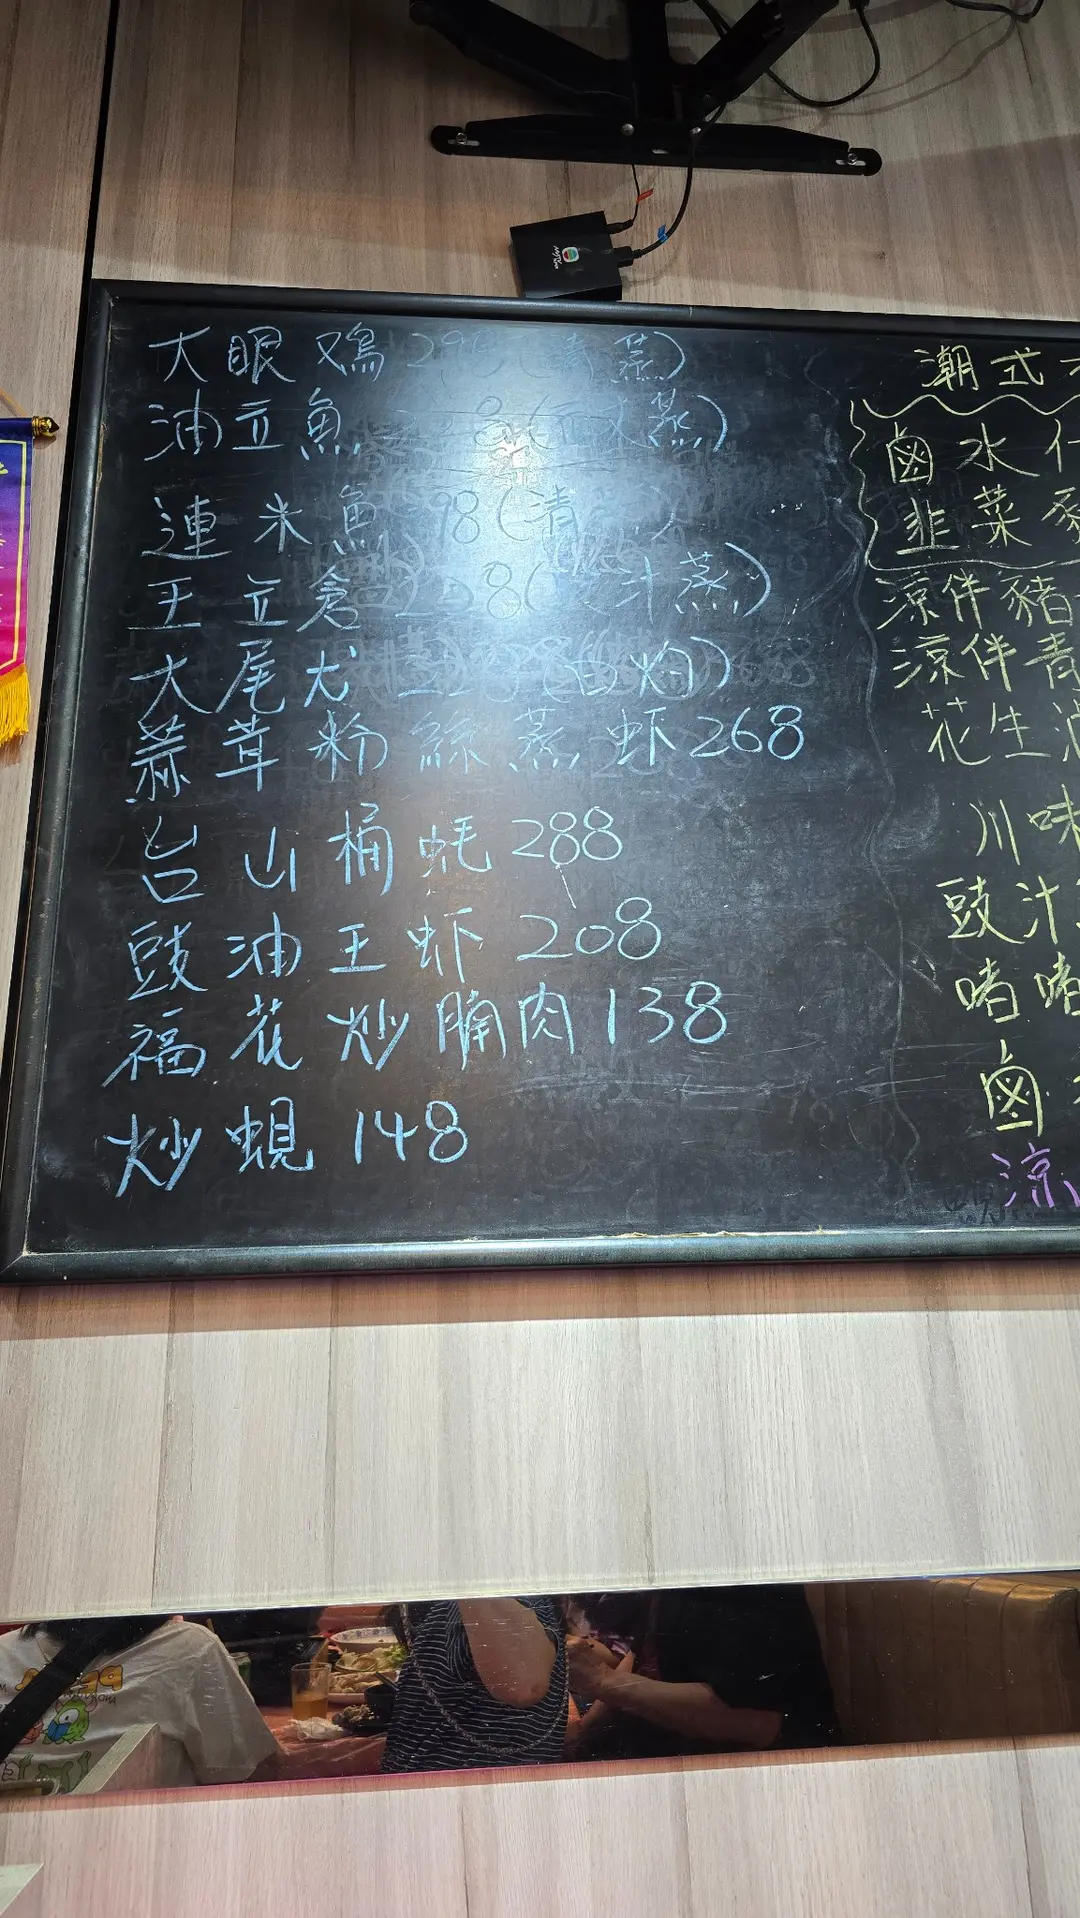 大眼鸡 29 清蒸)
油立魚 8( 蒸)
連米魚 98(清 )
王立倉 58( 汁蒸)
大尾尤 (白灼)
蒜茸粉絲蒸虾268
台山桶蚝288
豉油王虾208
福花炒腩肉138
炒蜆148
潮式
鹵水
韭菜
涼伴豬
涼伴青
花生
川味
豉汁
啫啫
鹵
涼